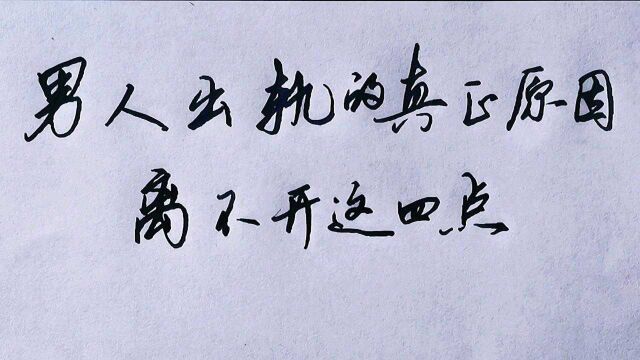 男人出轨的真正原因
离不开这四点